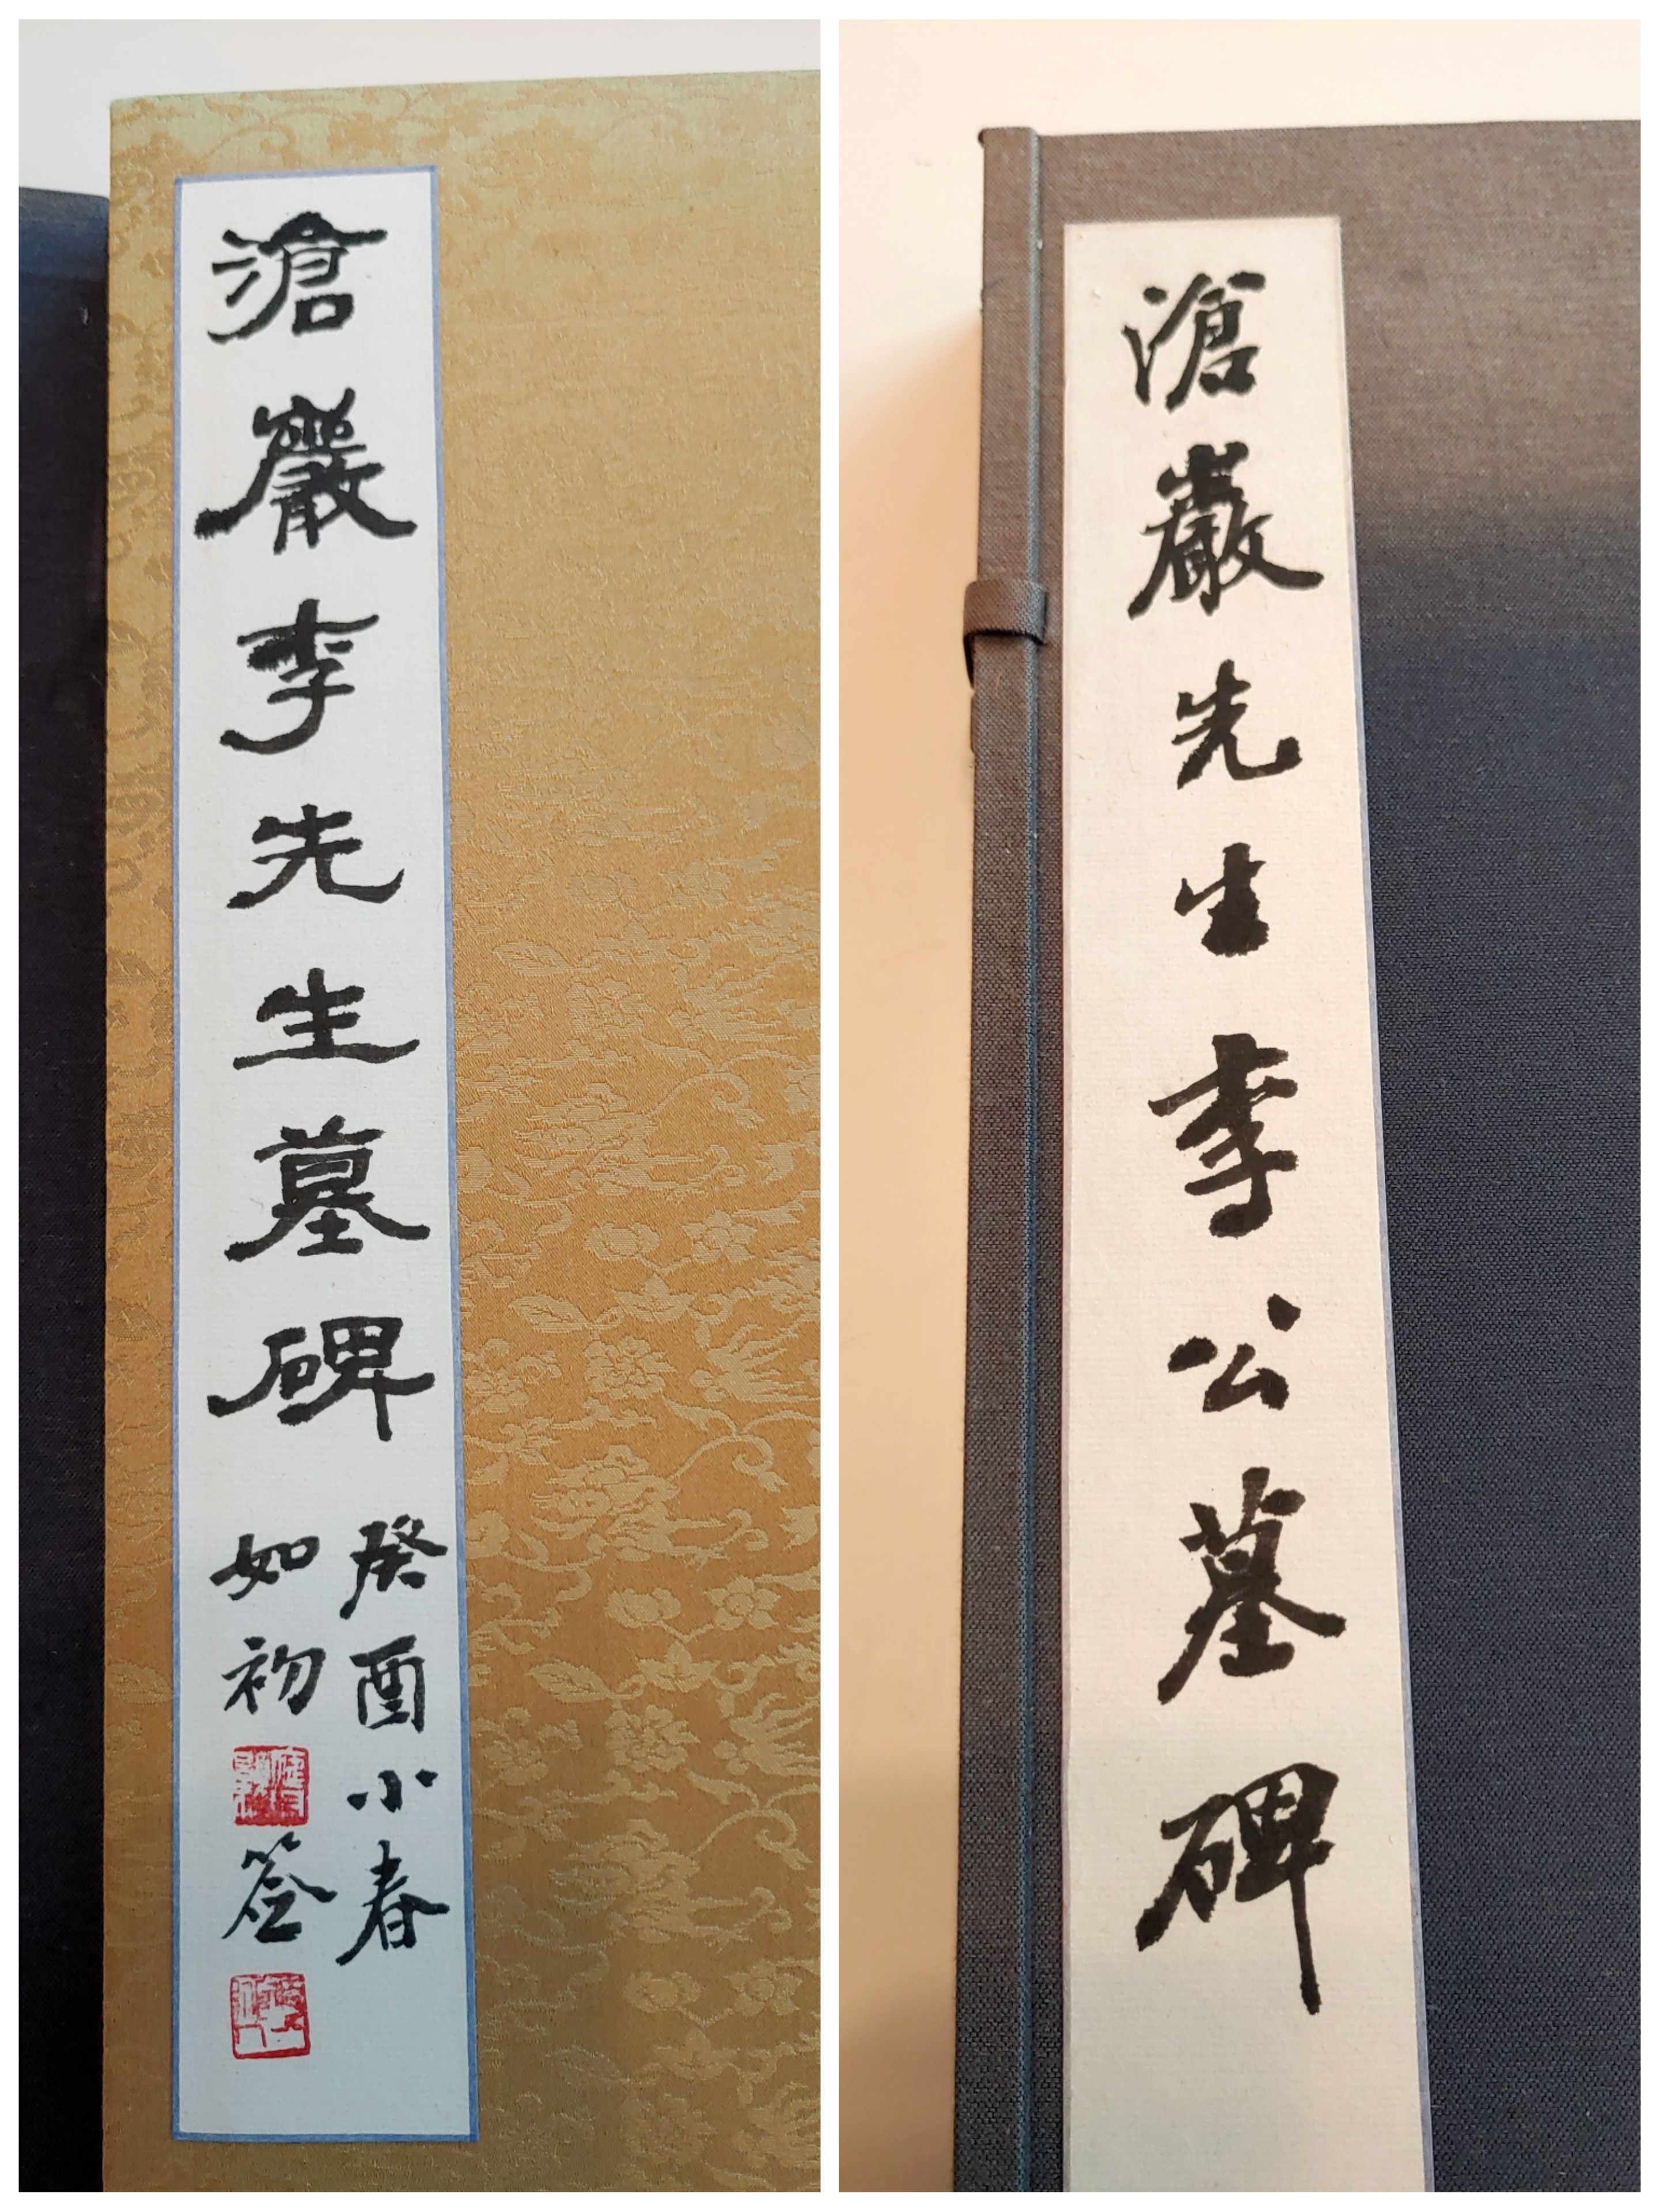 滄巖李先生墓碑
癸酉小春
如初
簽
滄巖先生李公墓碑